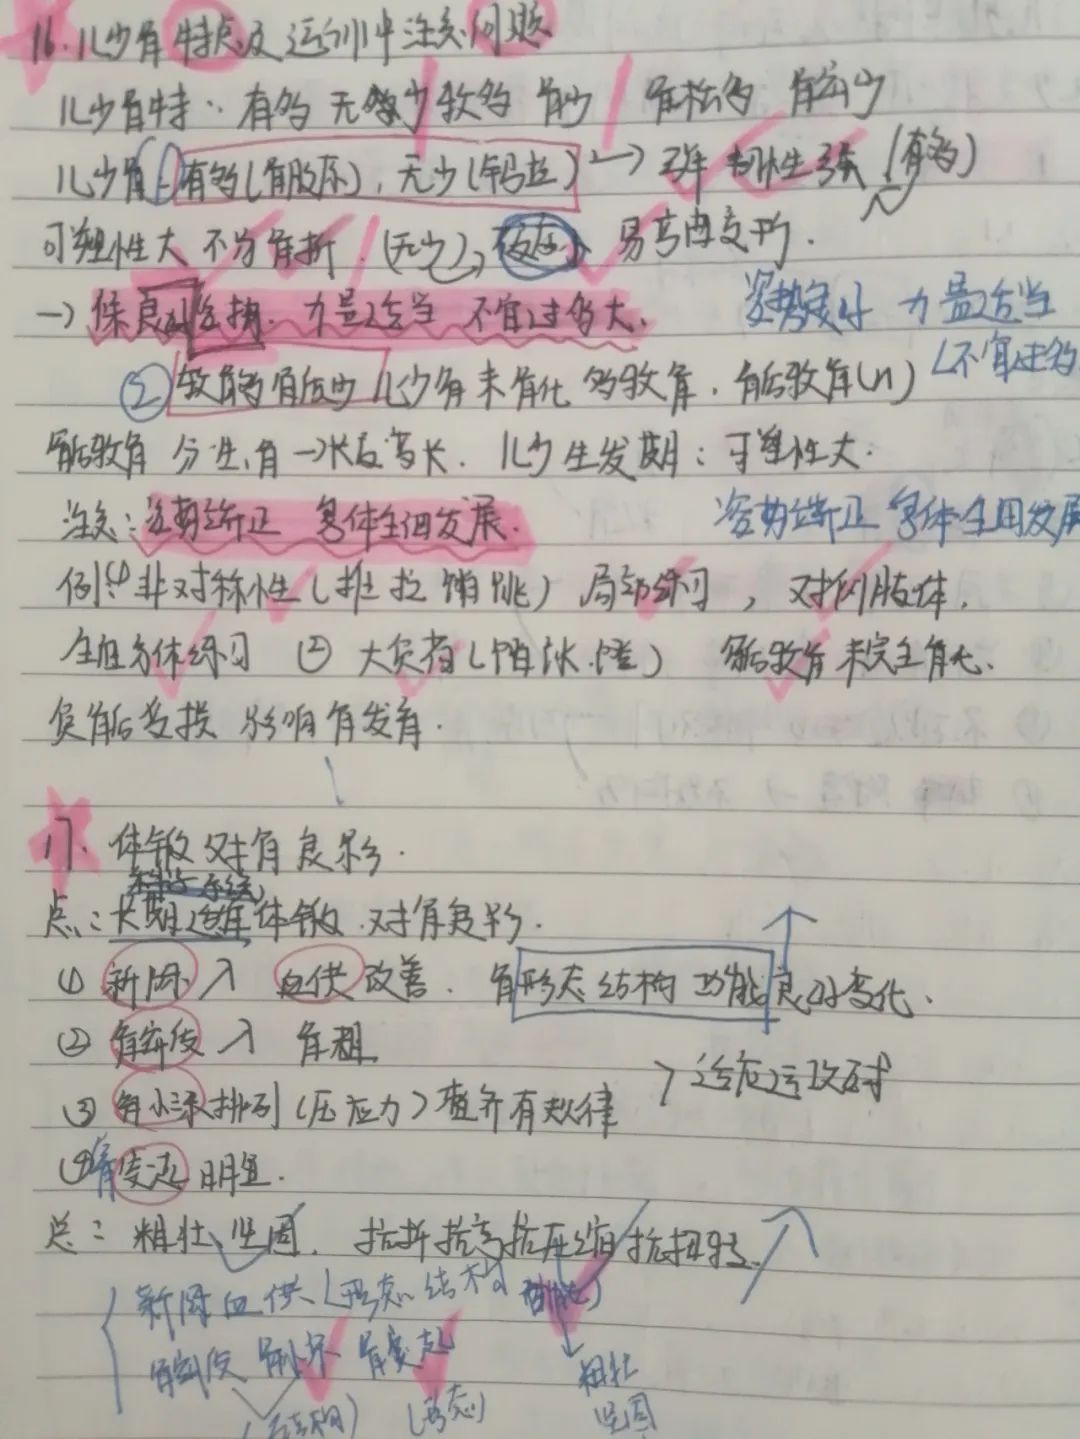 16. 儿少骨特点及运训中注意问题
儿少骨特: 有多 无少 软多 骨少 骨松多 骨密少
儿少骨 ① 有多(骨胶原), 无少(钙盐) → 弹 韧性强 (有多)
可塑性大 不易骨折 (无少) 易弯曲变形.
→ 保良好姿势. 力量适当 不宜过多大. 姿势良好 力量适当
② 软骨多骨质少 儿少骨未骨化 多软骨. 骺软骨(n) (不宜过多
骺软骨 分生,骨→长度害长. 儿少生发期: 可塑性大.
注意: 姿势端正 身体全面发展. 姿势端正 身体全面发展
例: ① 非对称性(推 拉 跳) 局部练习, 对侧肢体.
全面身体练习 ② 大负荷( ) 骺软骨未完全骨化.
负骺受损 影响骨发育.
17. 体锻对骨良影.
科学系统
点: 长期 体锻 对骨良影.
① 新陈入 血供改善. 骨形态结构 功能良好变化.
② 骨密质入 骨粗 > 适应运
③ 骨小梁排列(压应力) 整齐有规律
④ 骨突起明显.
总: 粗壮坚固. 抗折抗弯抗压缩抗扭转.
新陈 血供 (形态 结构 功能)
骨密质 骨小 骨突起 粗壮
(结构) (形态) 坚固